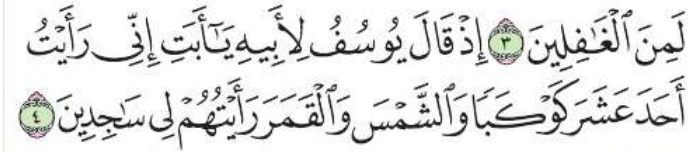 لَمِنَ ٱلْغَٰفِلِينَ ٣ إِذْ قَالَ يُوسُفُ لِأَبِيهِ يَٰٓأَبَتِ إِنِّى رَأَيْتُ
أَحَدَ عَشَرَ كَوْكَبًا وَٱلشَّمْسَ وَٱلْقَمَرَ رَأَيْتُهُمْ لِى سَٰجِدِينَ ٤